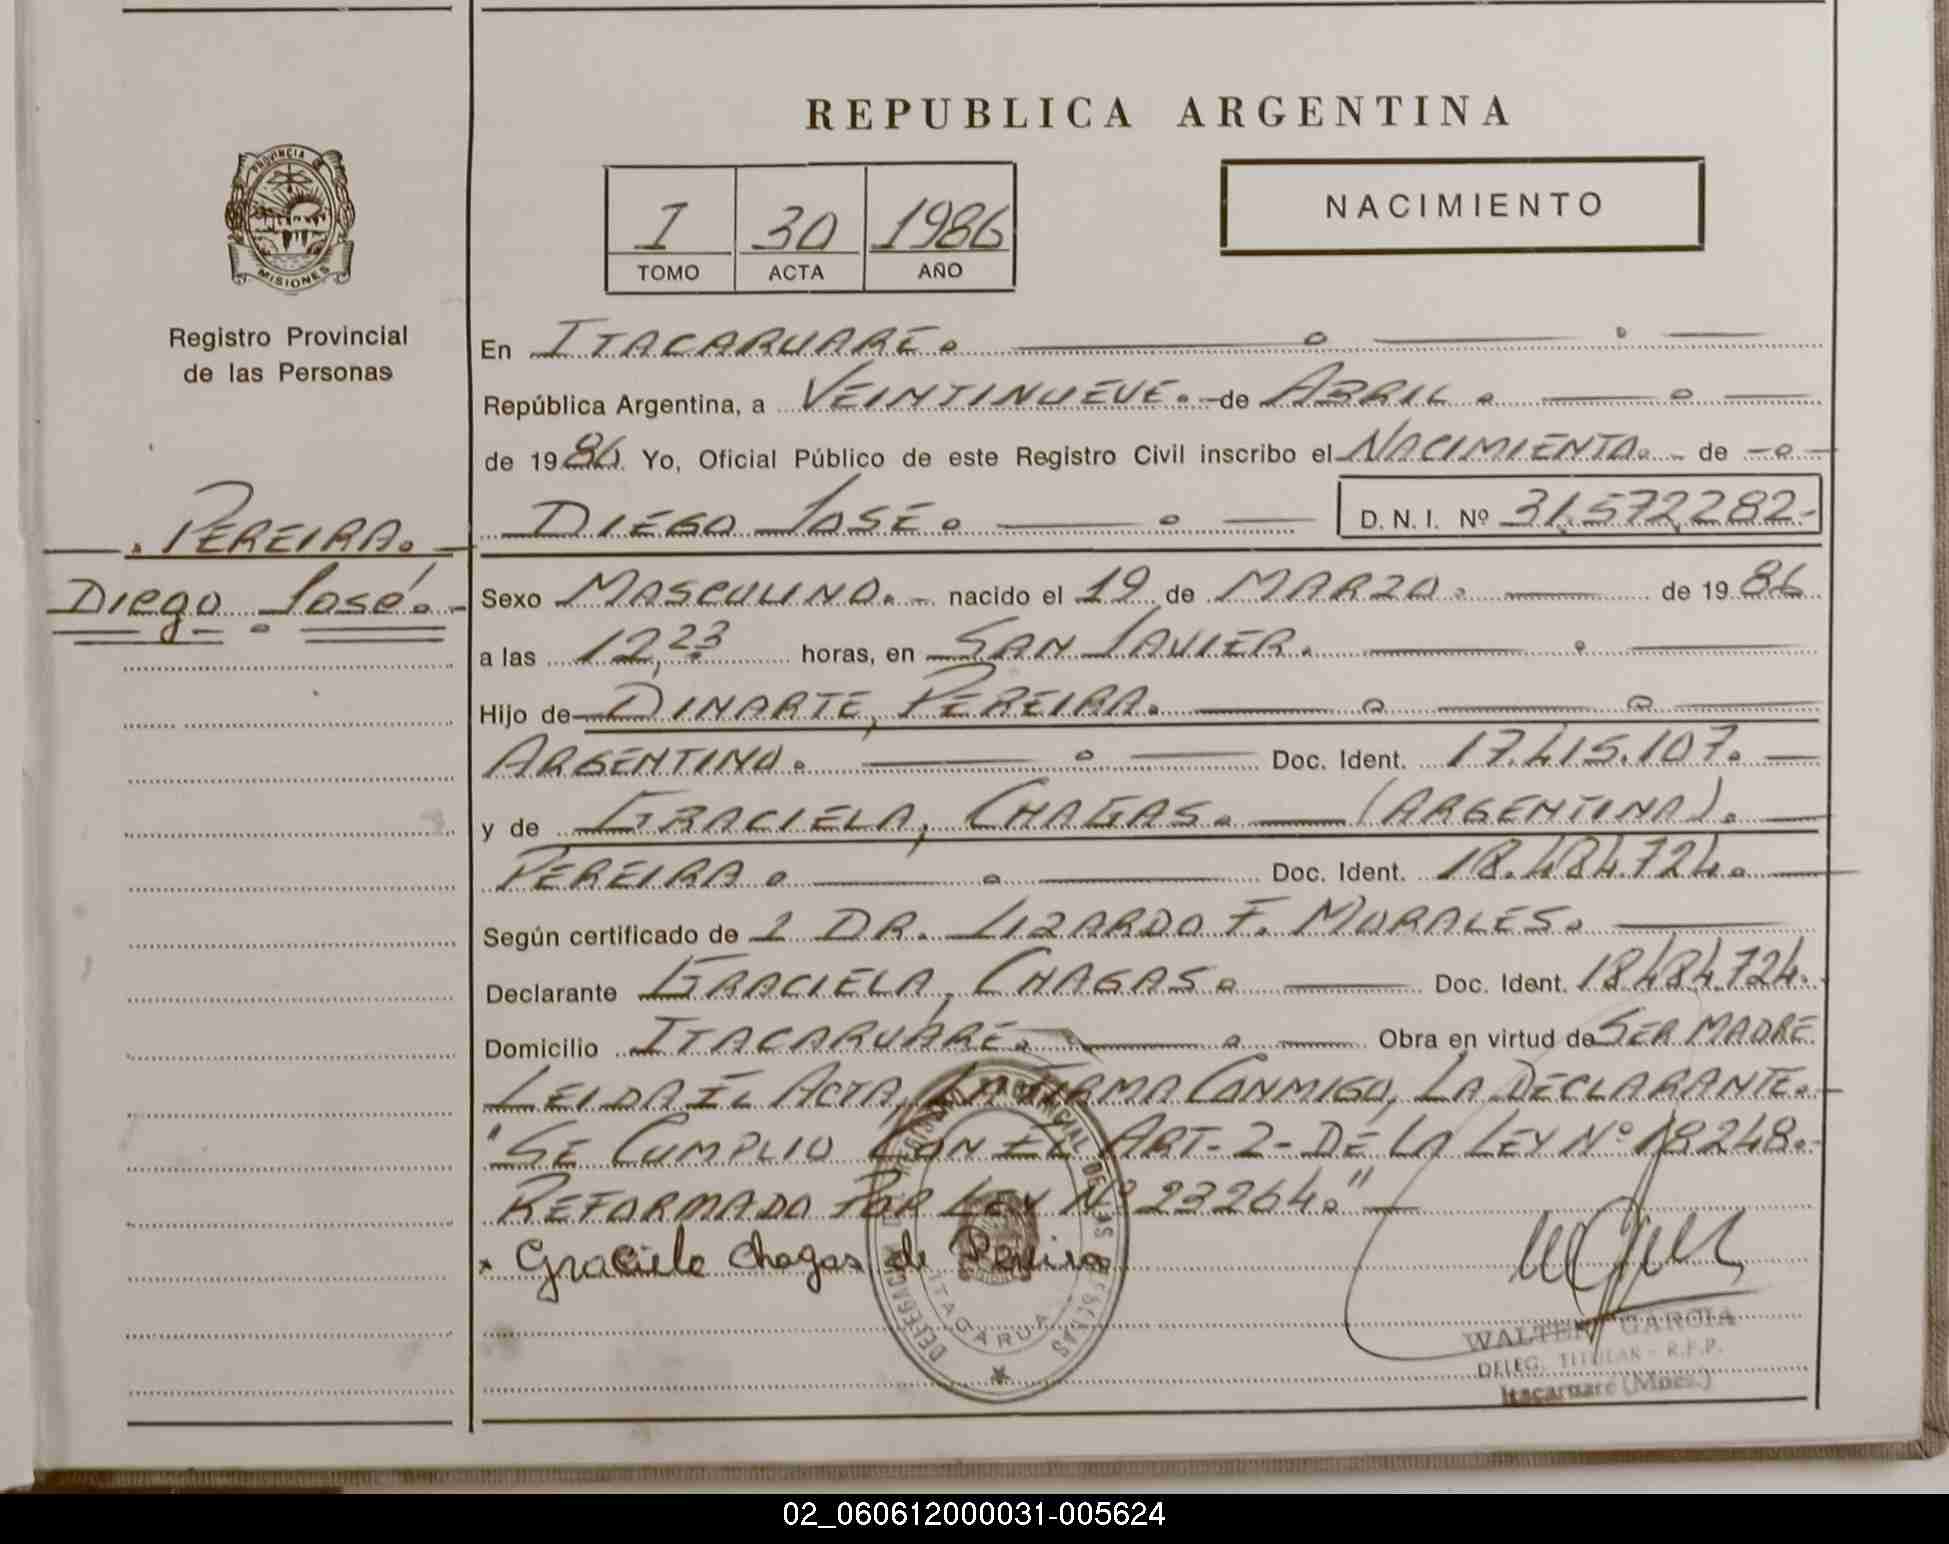 REPUBLICA ARGENTINA
PROVINCIA DE
MISIONES
Registro Provincial
de las Personas
I 30 1986
TOMO ACTA AÑO
NACIMIENTO
En ITACARUARÉ.
República Argentina, a VEINTINUEVE. de ABRIL.
de 1986. Yo, Oficial Público de este Registro Civil inscribo el NACIMIENTO. de
PEREIRA.
Diego José.
DIEGO JOSÉ. D. N. I. Nº 31.572.282.-
Sexo MASCULINO.- nacido el 19 de MARZO. de 1986
a las 12,23 horas, en SAN JAVIER.
Hijo de DINARTE, PEREIRA.
ARGENTINO. Doc. Ident. 17.415.107.
y de GRACIELA, CHAGAS. (ARGENTINA).
PEREIRA. Doc. Ident. 18.484.724.
Según certificado de 1 DR. LIZARDO F. MORALES.
Declarante GRACIELA, CHAGAS. Doc. Ident. 18.484.724.
Domicilio ITACARUARE. Obra en virtud de SER MADRE
LEIDA EL ACTA, LA FIRMA CONMIGO, LA DECLARANTE.
"SE CUMPLIO CON EL ART-2-DE LA LEY Nº 18248.-
REFORMADO POR LEY Nº 23264."
x Graciela Chagas de Pereira
WALTER GARCIA
DELEG. TITULAR - R.P.P.
Itacaruaré (Mnes.)
02_060612000031-005624